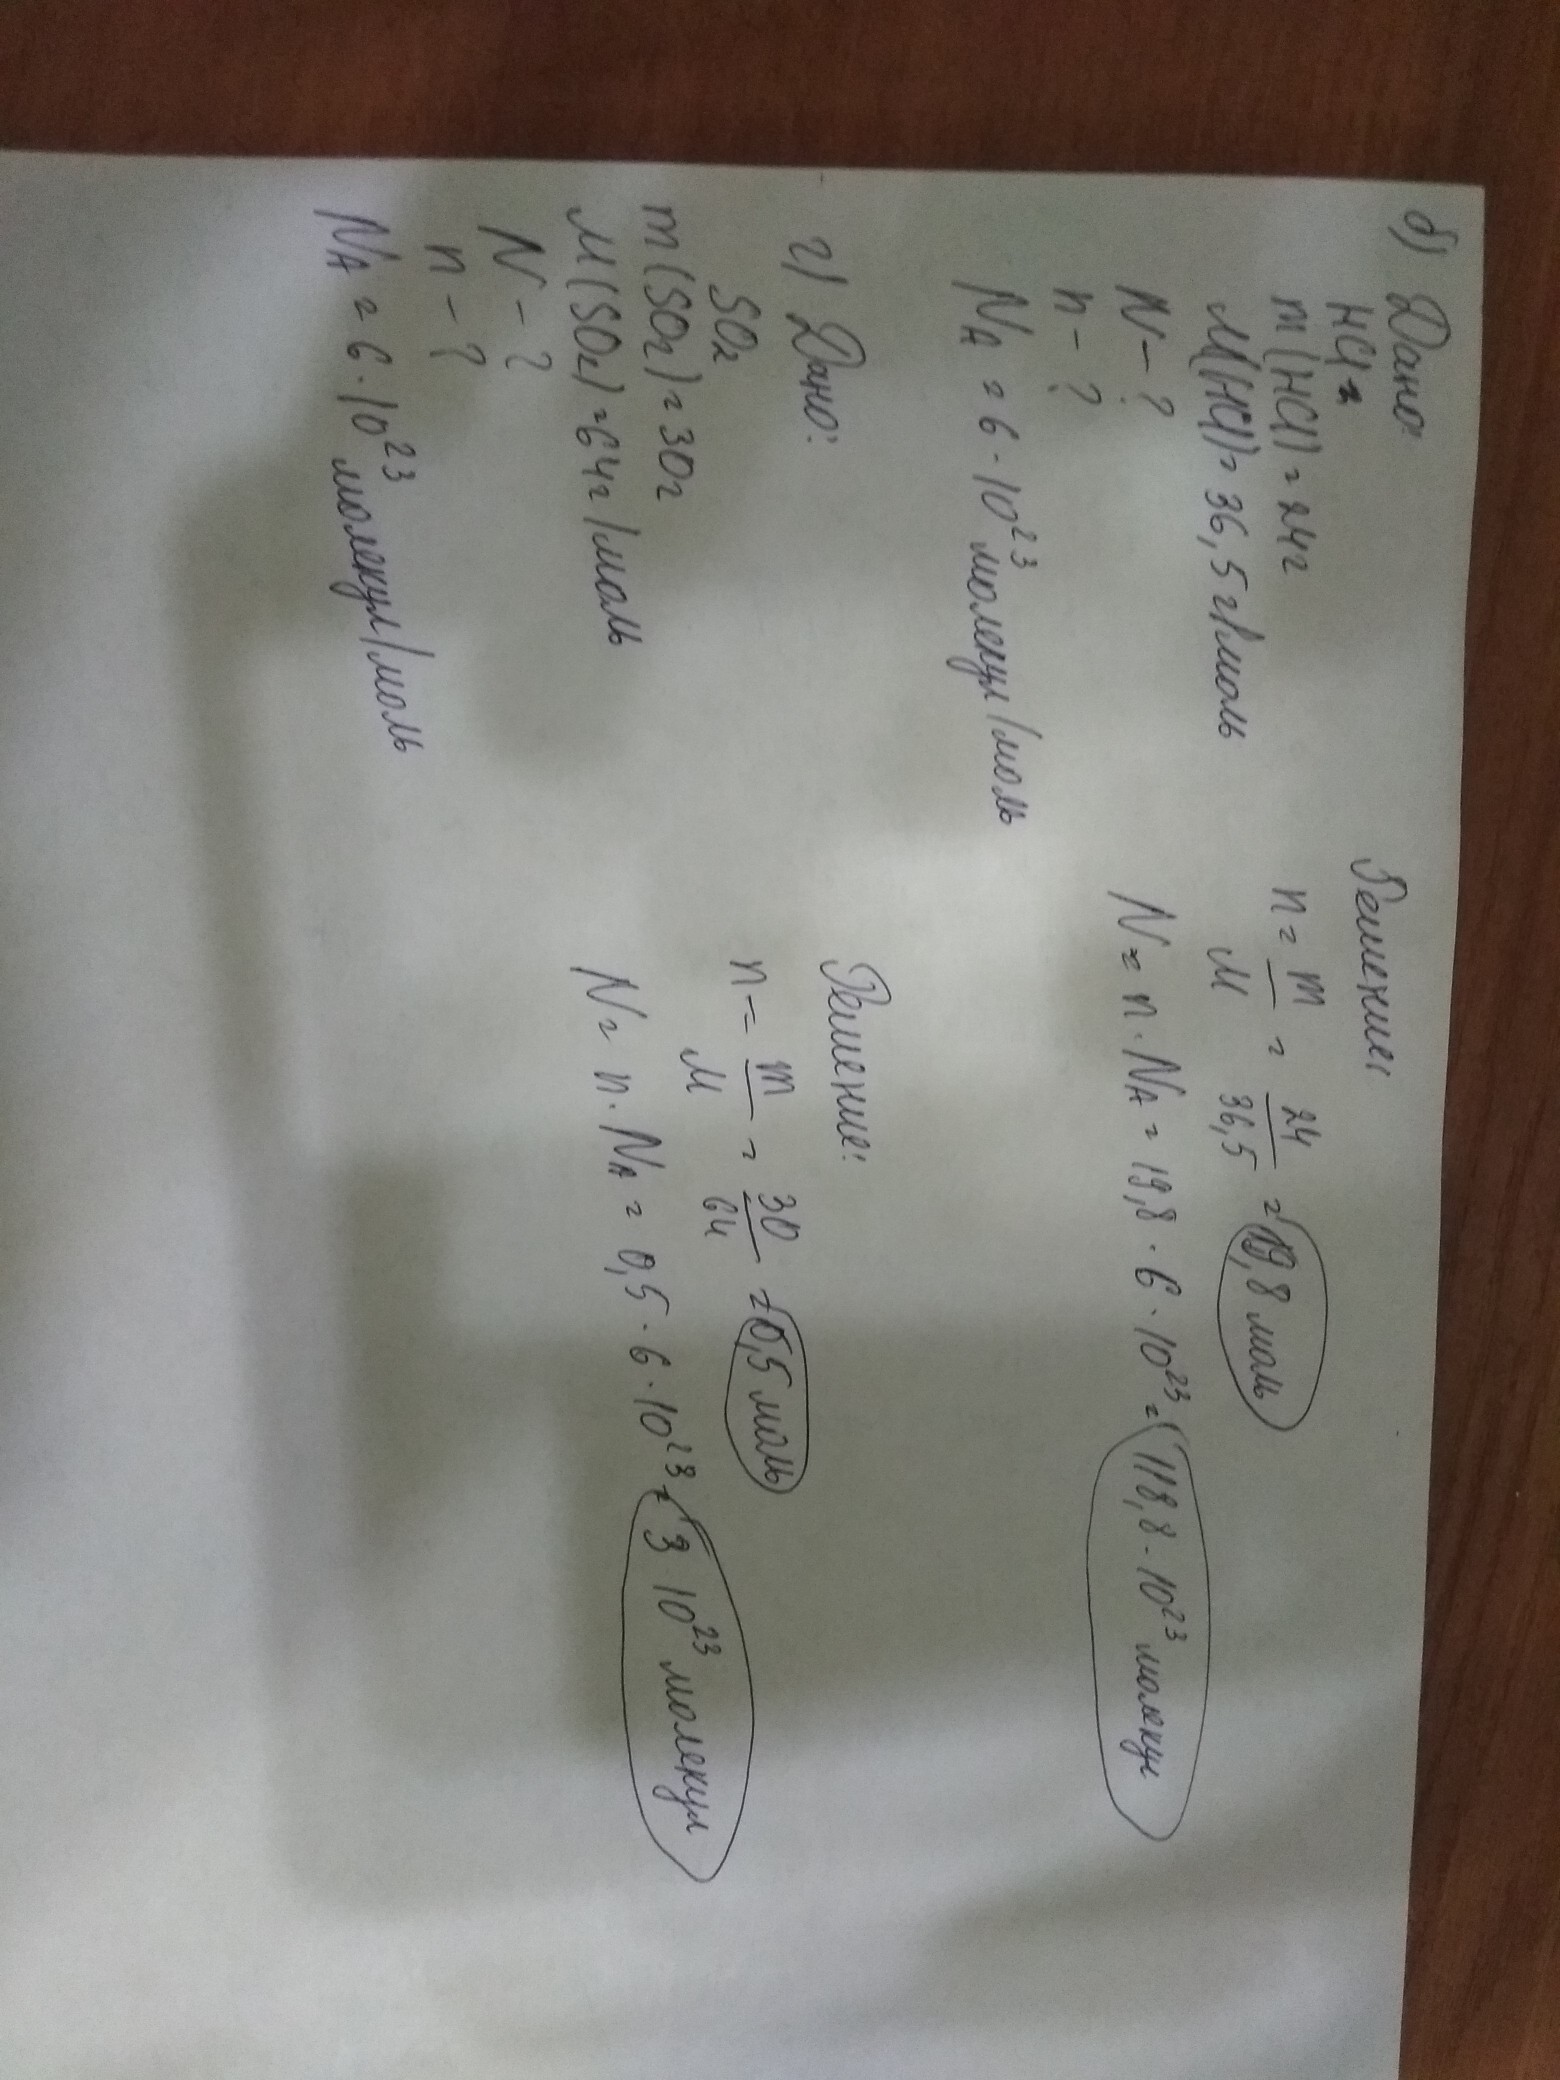 б) Дано:
HCl
m(HCl) = 24г
M(HCl) = 36,5 г/моль
N - ?
n - ?
N_A = 6 · 10²³ молекул/моль
Решение:
n = m/M = 24/36,5 = 19,8 моль
N = n · N_A = 19,8 · 6 · 10²³ = 118,8 · 10²³ молекул
г) Дано:
SO₂
m(SO₂) = 30г
M(SO₂) = 64г/моль
N - ?
n - ?
N_A = 6 · 10²³ молекул/моль
Решение:
n = m/M = 30/64 = 0,5 моль
N = n · N_A = 0,5 · 6 · 10²³ = 3 · 10²³ молекул